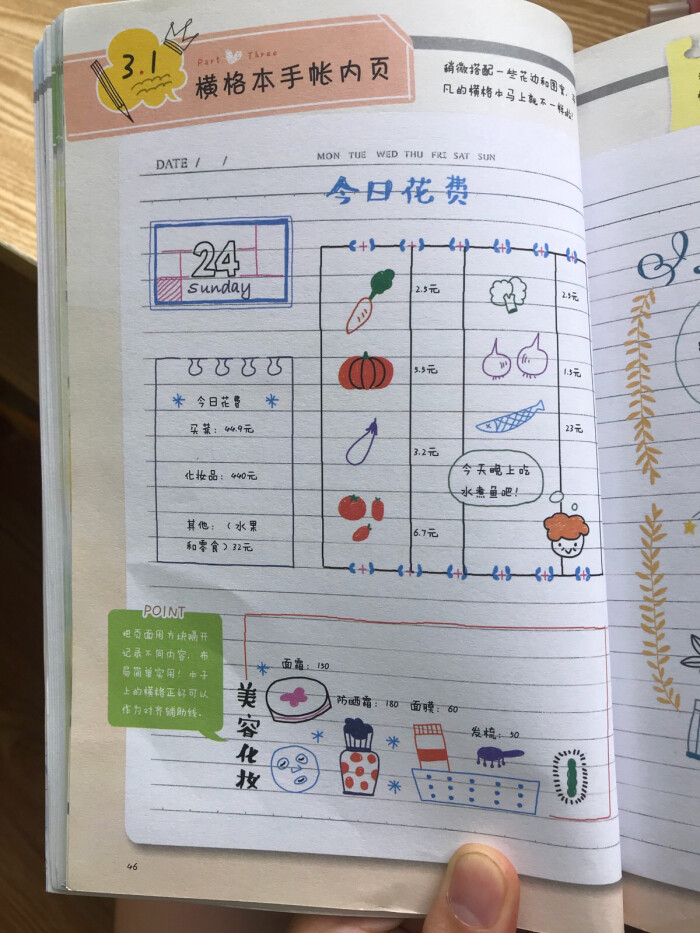 3.1
Part Three
横格本手帐内页
稍微搭配一些花边和图案,
凡的横格本马上就不一样啦!
DATE / /
MON TUE WED THU FRI SAT SUN
今日花费
24
Sunday
今日花费
买菜: 44.9元
化妆品: 440元
其他: (水果
和零食)32元
2.5元
2.5元
5.5元
1.5元
3.2元
23元
6.7元
今天晚上吃
水煮鱼吧!
POINT
把页面用方块隔开
记录不同内容,布
局简单实用!本子
上的横格正好可以
作为对齐辅助线。
美容化妆
面霜: 150
防晒霜: 180
面膜: 60
发梳: 50
46